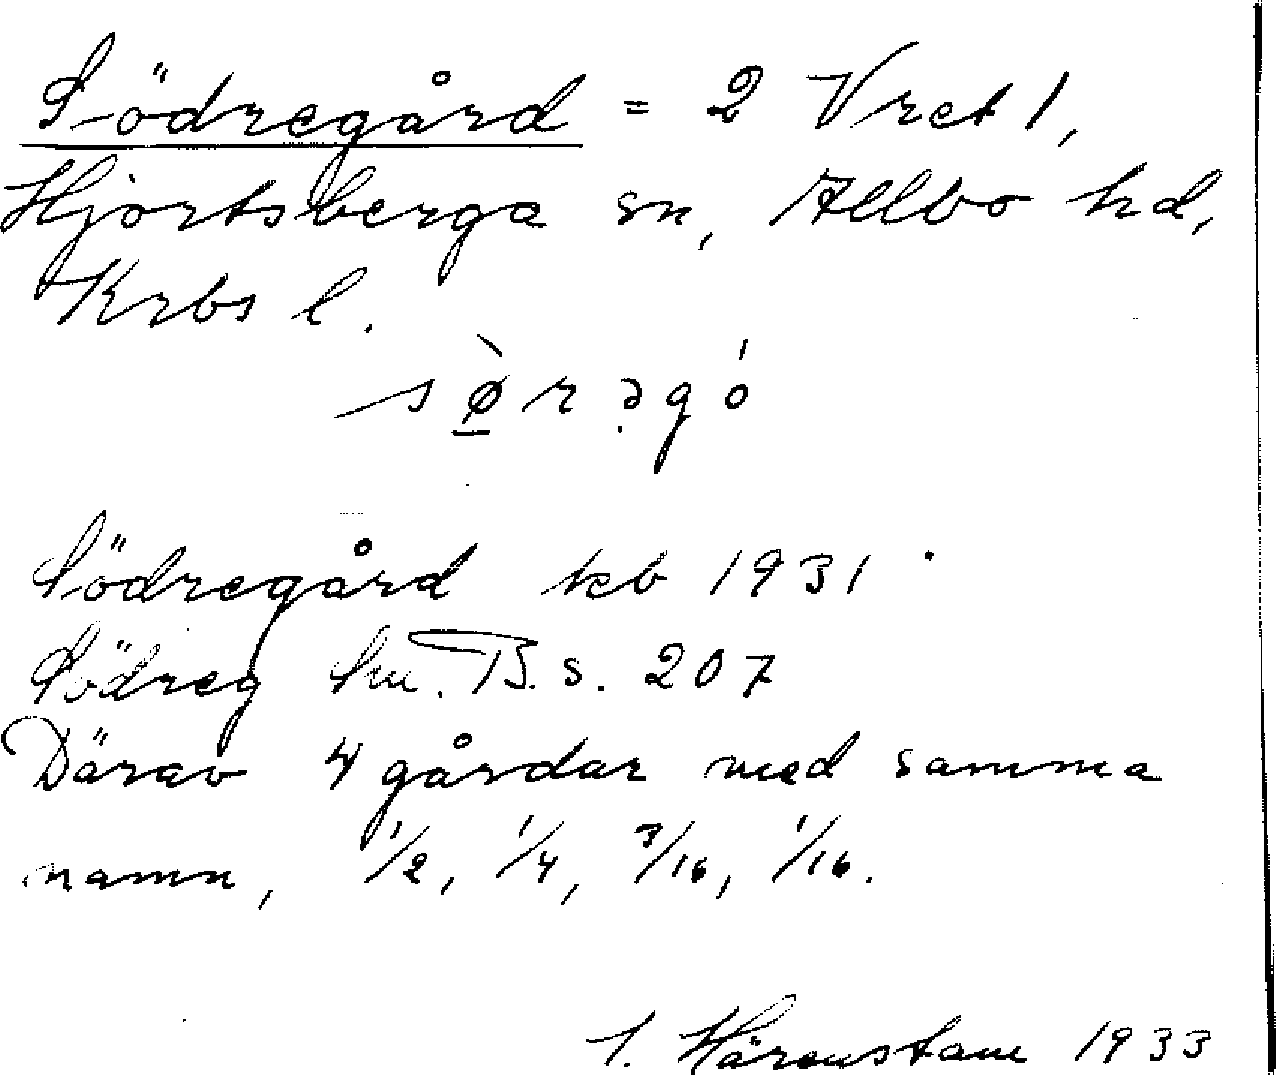 Södregård = 2 Vret 1,
Hjortsberga sn, Allbo hd,
Krbs l.
sø̱̀rə̣gó
Södregård kb 1931
Södreg Sm. B. s. 207
Därav 4 gårdar med samma
namn, 1/2, 1/4, 3/16, 1/16.
Härenstam 1933